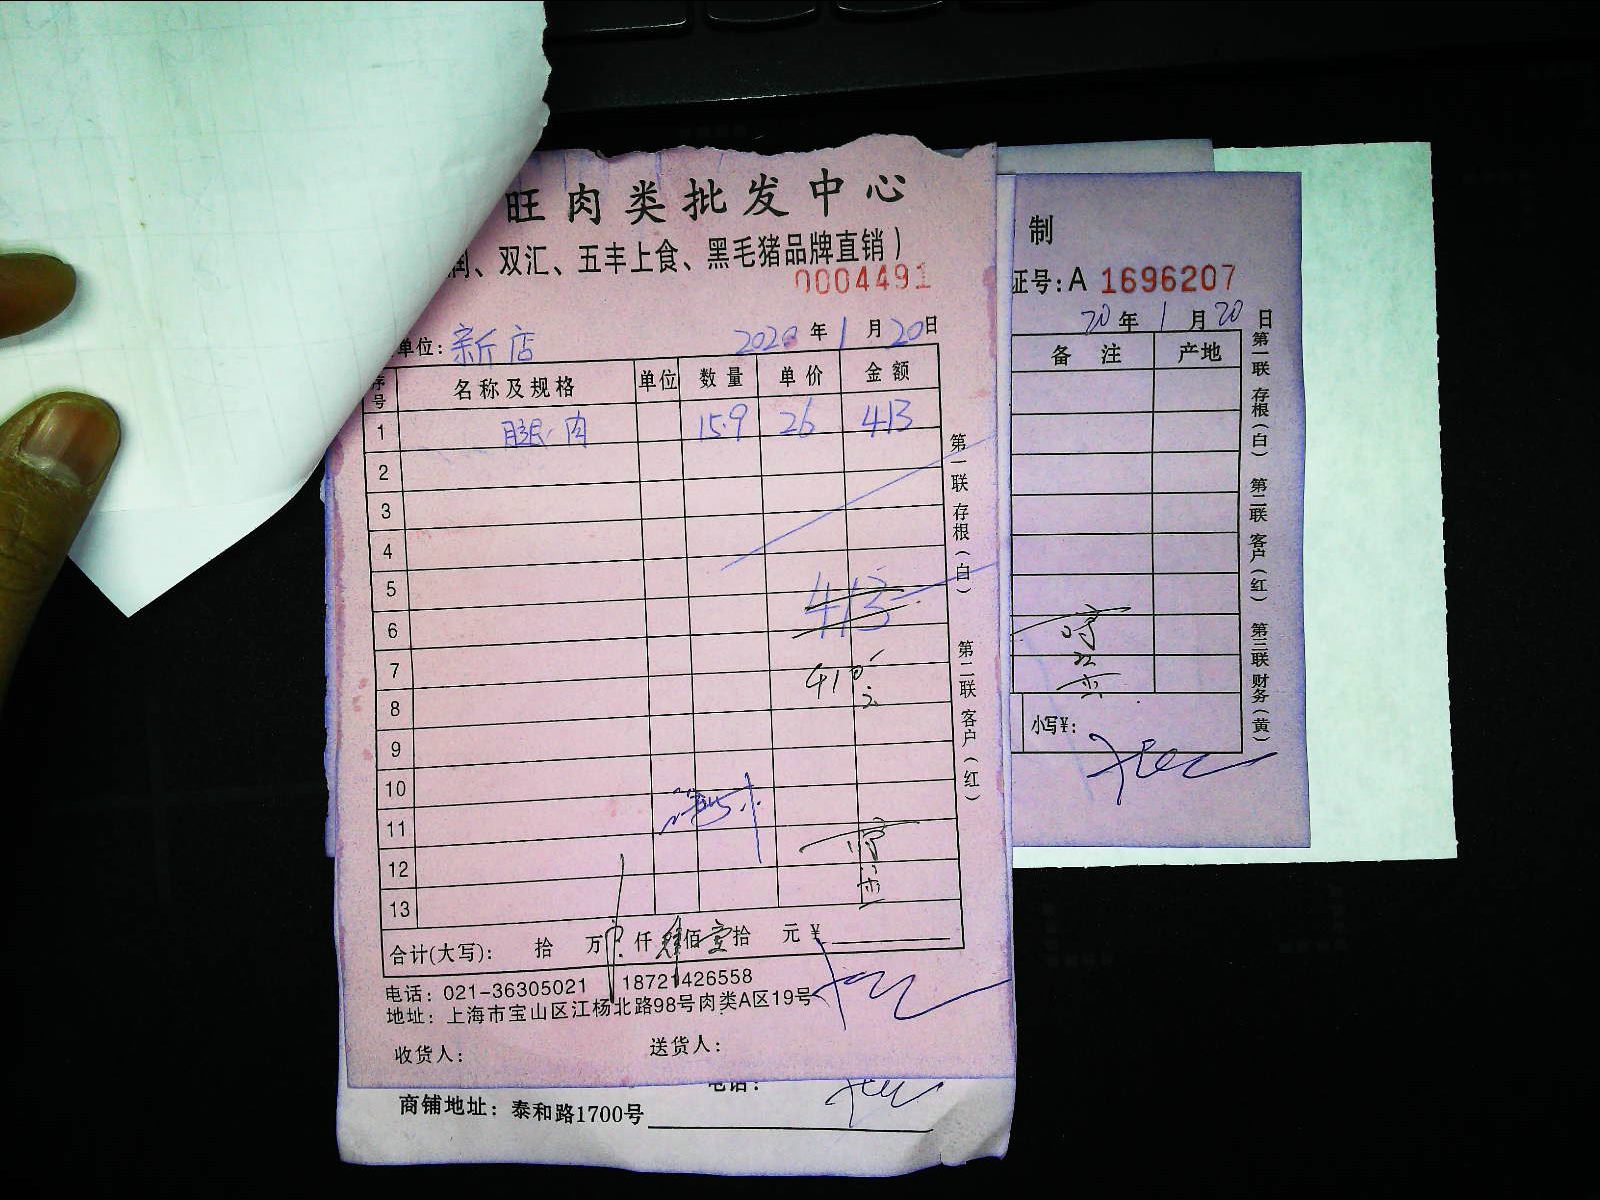 旺肉类批发中心
润、双汇、五丰上食、黑毛猪品牌直销）
0004491
单位：新店 2020年1月20日
序号 名称及规格 单位 数量 单价 金额
1 腿肉 15.9 26 413
2
3
4
5
413
6
7
410
8
9
10
11
12
13
合计(大写)： 拾 万 仟肆佰壹拾 元 ¥
电话：021-36305021 18721426558
地址：上海市宝山区江杨北路98号肉类A区19号
收货人： 送货人：
第一联 存根（白） 第二联 客户（红）
电话：
商铺地址：泰和路1700号
制
证号：A 1696207
20年1月20日
备注 产地
小写¥：
第一联 存根（白） 第二联 客户（红） 第三联 财务（黄）